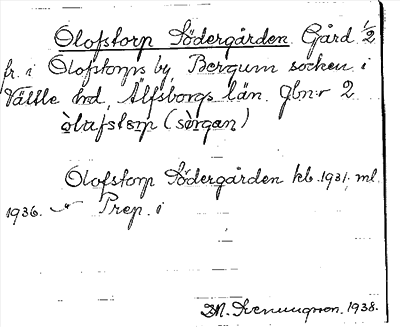 Olofstorp Södergården. Gård. 1/2
fr. i Olofstorps by, Bergum socken i
Vättle hd, Älfsborgs län. Gbn:r 2
òlafstɷrp (sø̀rgan)
Olofstorp Södergården kb. 1931, ml.
1936. Prep. i
M. Svenungsson. 1938.